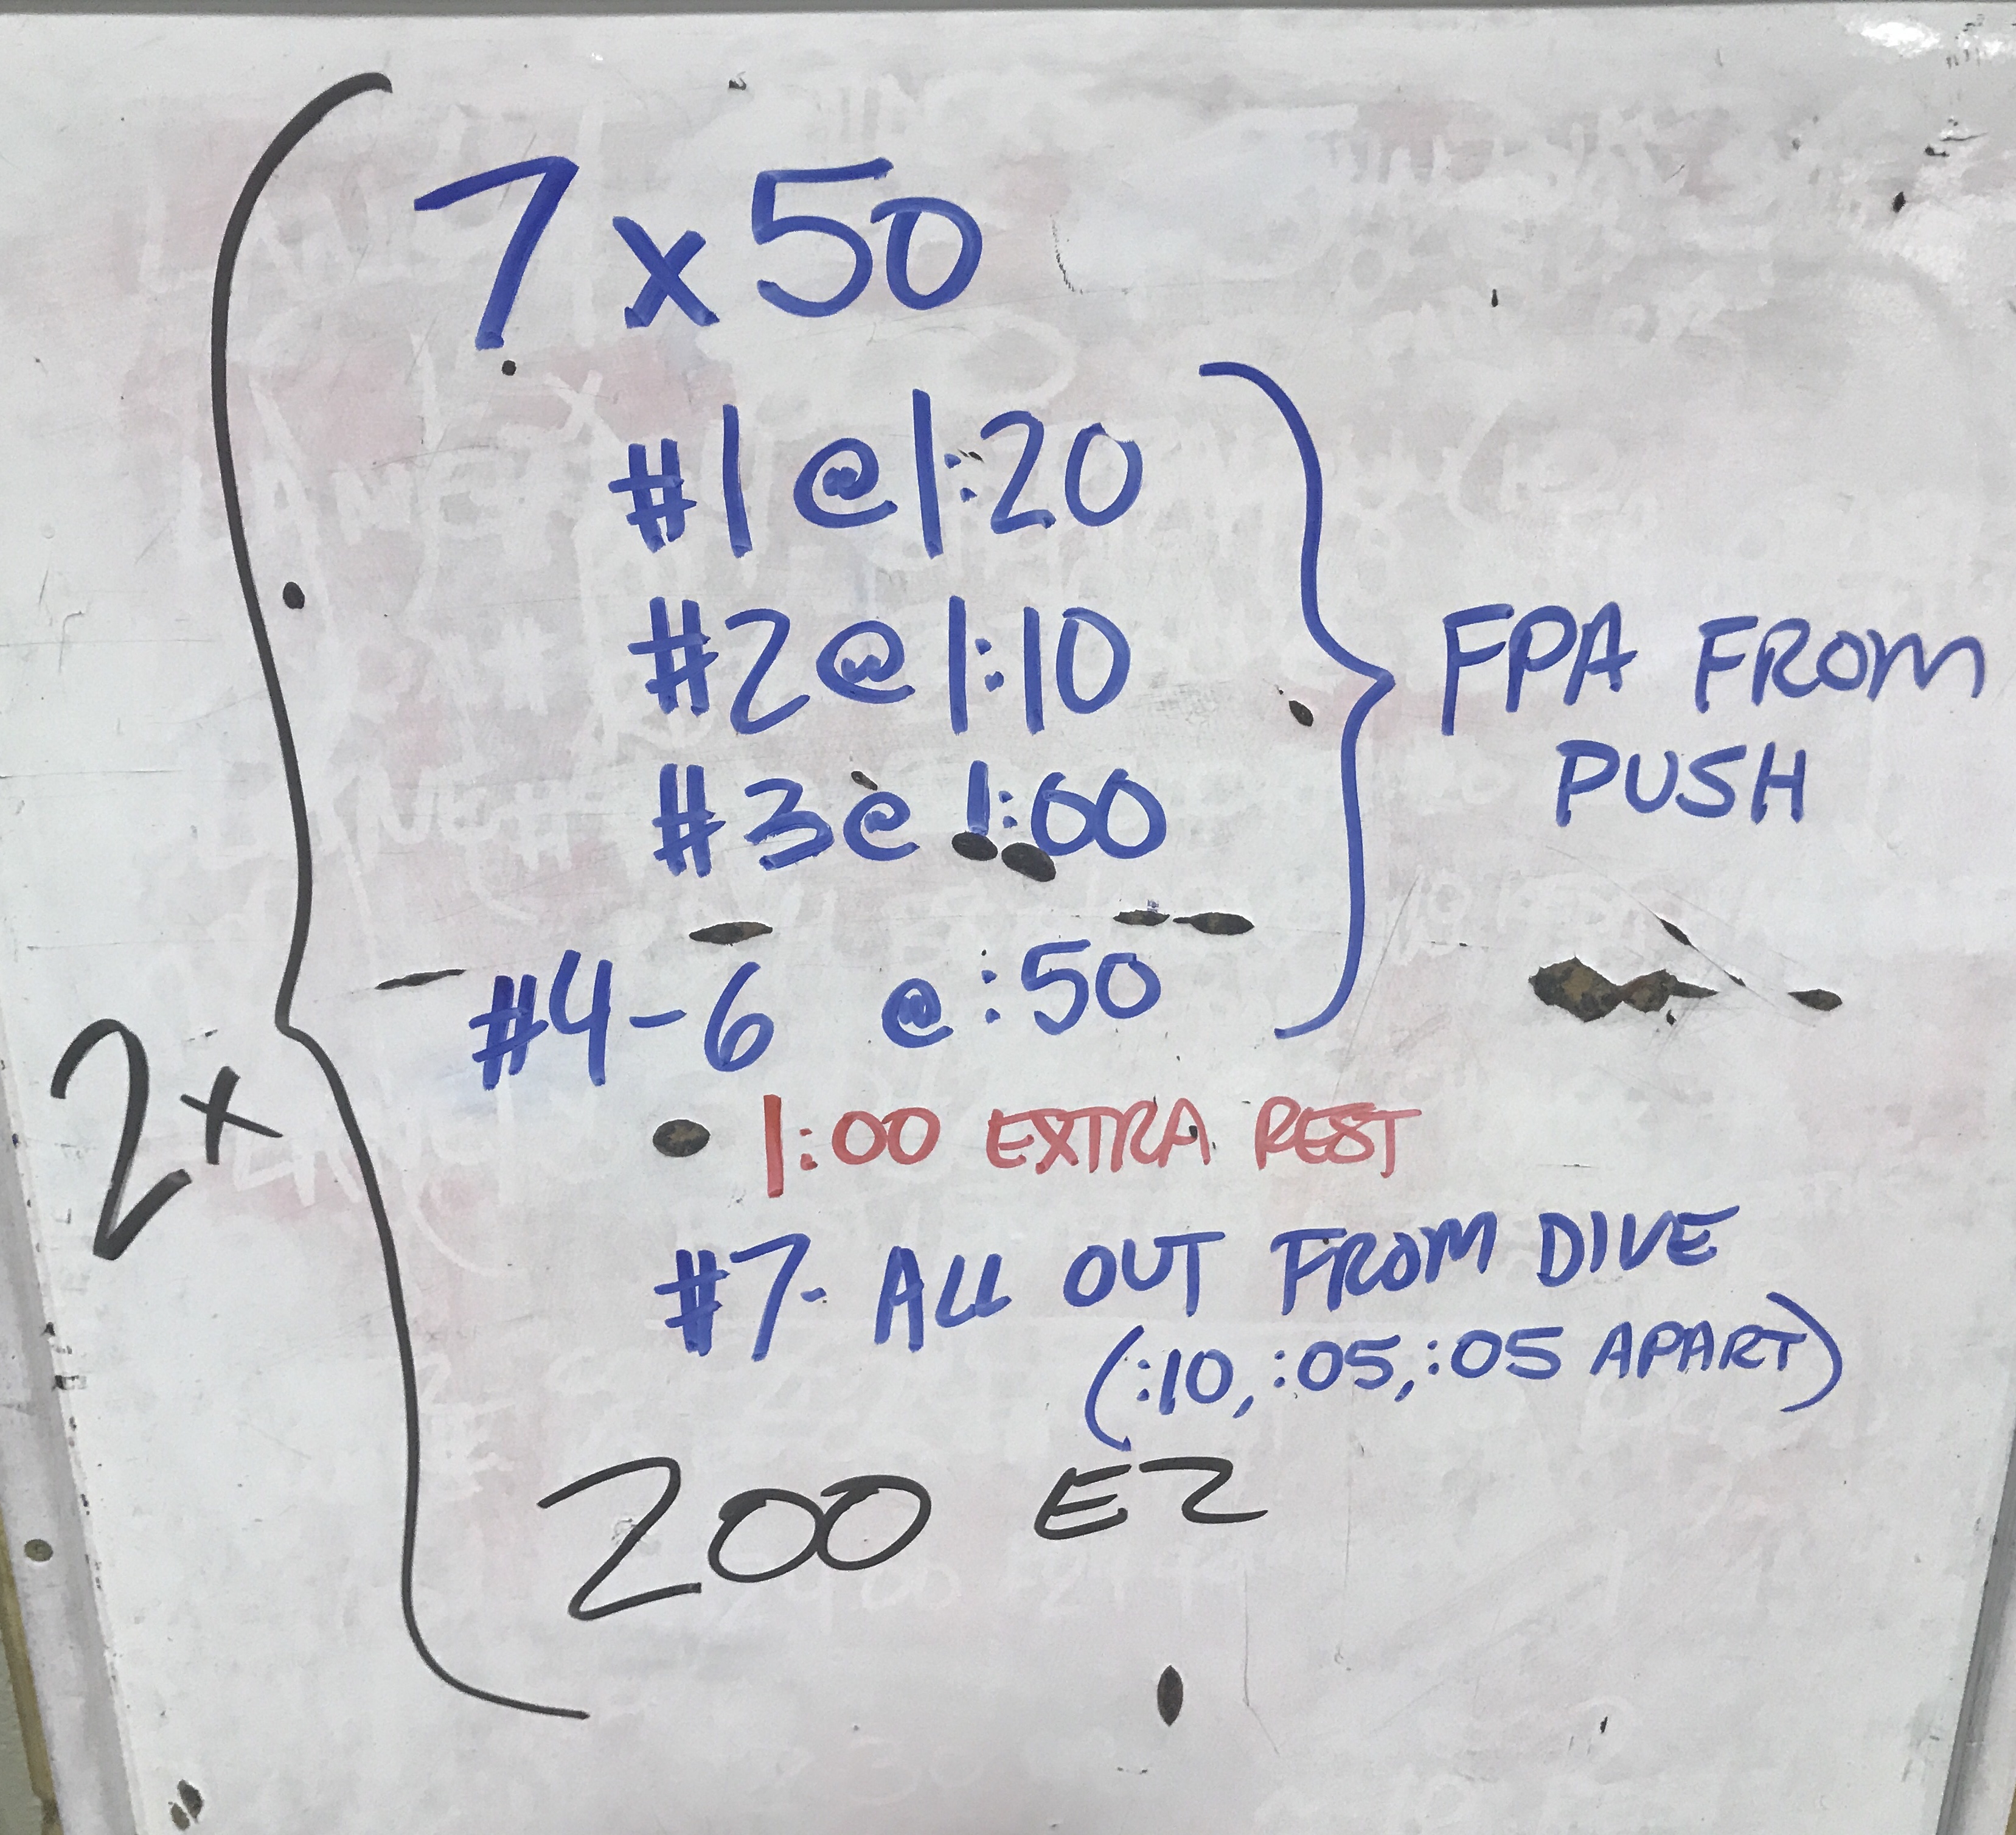 7 x 50
#1 @ 1:20
#2 @ 1:10
#3 @ 1:00
#4-6 @ :50
FPA FROM
PUSH
1:00 EXTRA REST
#7- ALL OUT FROM DIVE
(:10, :05, :05 APART)
200 EZ
2x